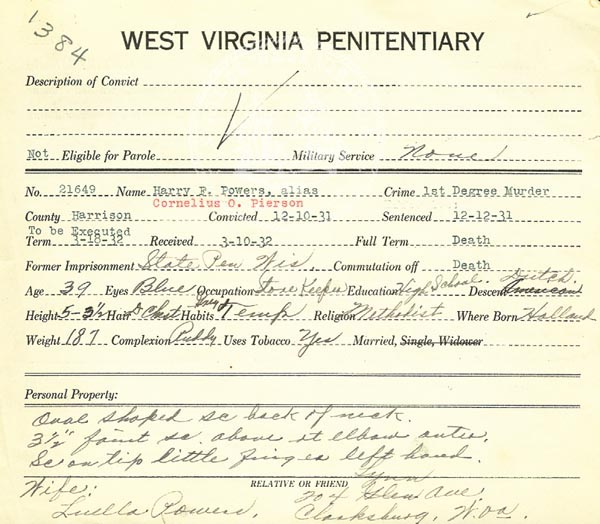 1384
WEST VIRGINIA PENITENTIARY
Description of Convict
Not Eligible for Parole Military Service None
No. 21649 Name Harry F. Powers, alias Crime 1st Degree Murder
Cornelius O. Pierson
County Harrison Convicted 12-10-31 Sentenced 12-12-31
To be Executed
Term 3-18-32 Received 3-10-32 Full Term Death
Former Imprisonment State Pen Wis Commutation off Death
Age 39 Eyes Blue Occupation Store Keeper Education High School. Descent American Dutch
Height 5-3½ Hair D Chst Habits Temp Religion Methodist Where Born Holland
Weight 187 Complexion Ruddy Uses Tobacco Yes Married, Single, Widower
Personal Property:
Oval shaped sc back of neck.
3½" faint sc. above rt elbow outer.
Sc on tip little finger left hand.
RELATIVE OR FRIEND
Wife: Quiet Glen Ave,
Luella Powers, Clarksburg, W.Va.